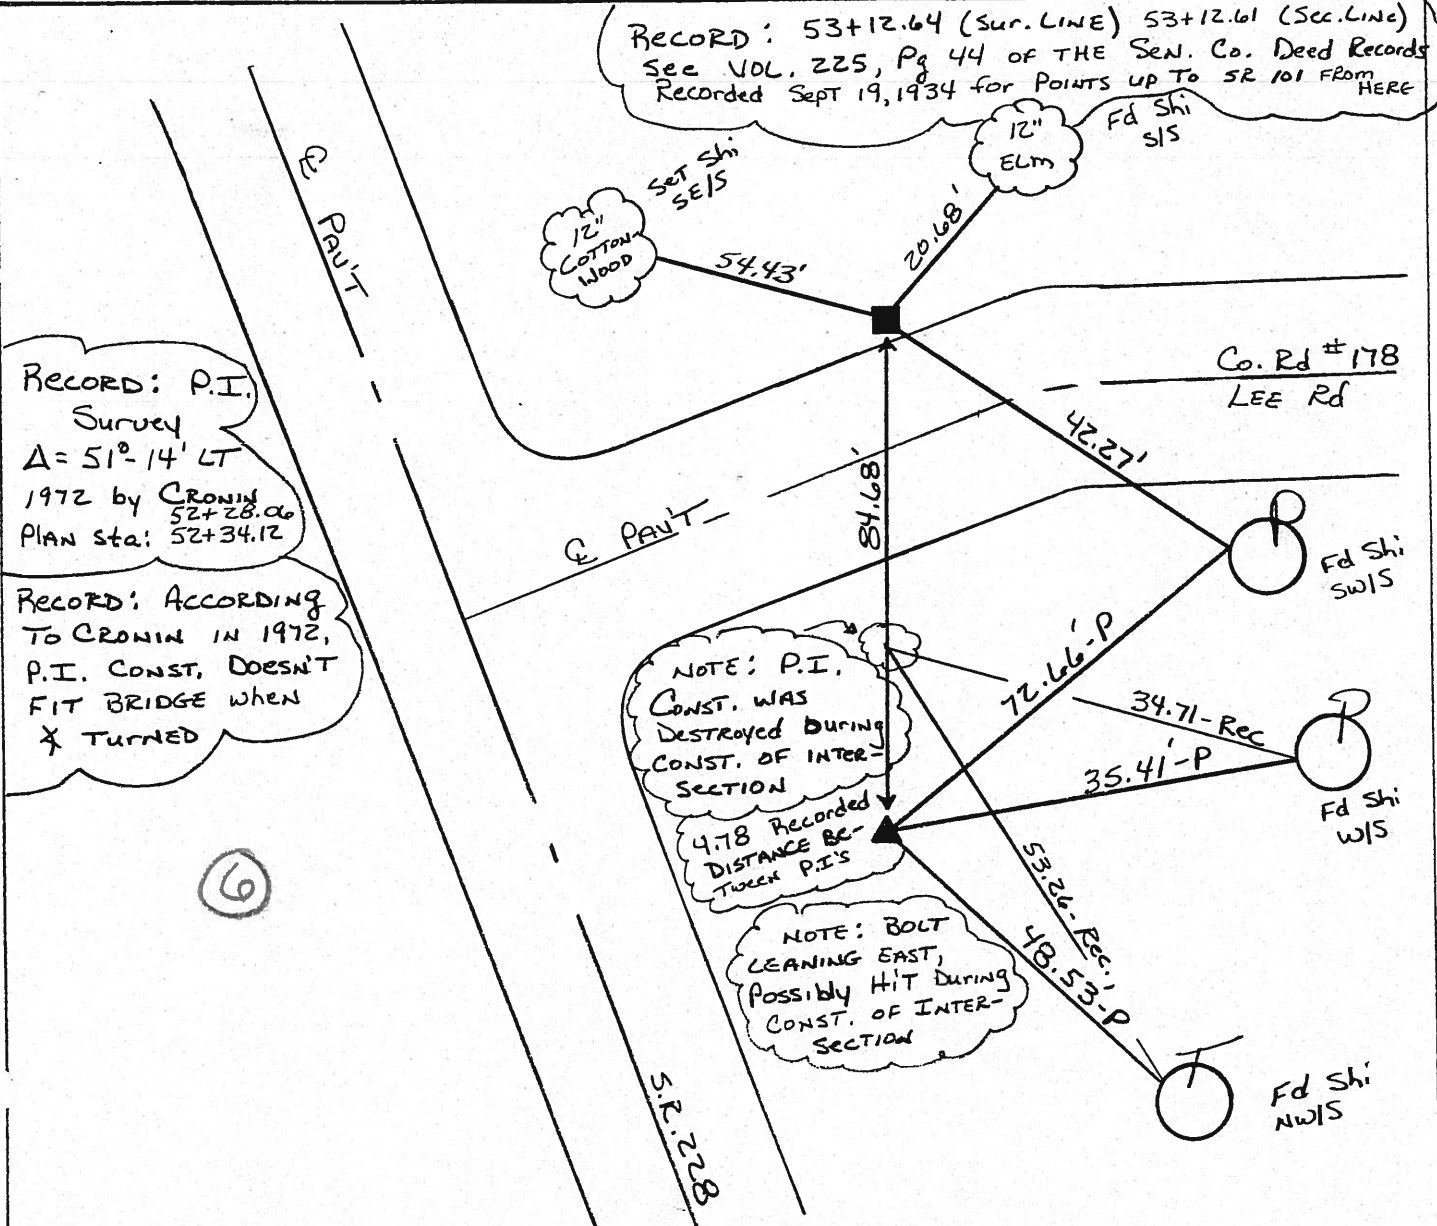 RECORD: 53+12.64 (Sur. LINE) 53+12.61 (Sec. LINE)
See VOL. 225, Pg 44 OF THE SEN. Co. Deed Records
Recorded Sept 19, 1934 for POINTS UP TO SR 101 FROM HERE
12" ELM
Fd Shi
S/S
Set Shi
SE/S
12"
COTTON-
WOOD
54.43'
20.68'
℄ PAV'T
Co. Rd #178
LEE Rd
42.27'
84.68'
℄ PAV'T
RECORD: P.I.
Survey
Δ= 51°-14' LT
1972 by CRONIN
52+28.06
PLAN Sta: 52+34.12
RECORD: ACCORDING
TO CRONIN IN 1972,
P.I. CONST. DOESN'T
FIT BRIDGE when
∡ TURNED
P
Fd Shi
SW/S
NOTE: P.I.
CONST. WAS
Destroyed During
CONST. OF INTER-
SECTION
72.66'-P
34.71-Rec
35.41'-P
P
Fd Shi
W/S
4.78 Recorded
DISTANCE BE-
TWEEN P.I'S
53.26-Rec.
48.53'-P
NOTE: BOLT
LEANING EAST,
Possibly HIT During
CONST. OF INTER-
SECTION
6
T
Fd Shi
NW/S
S.R. 228